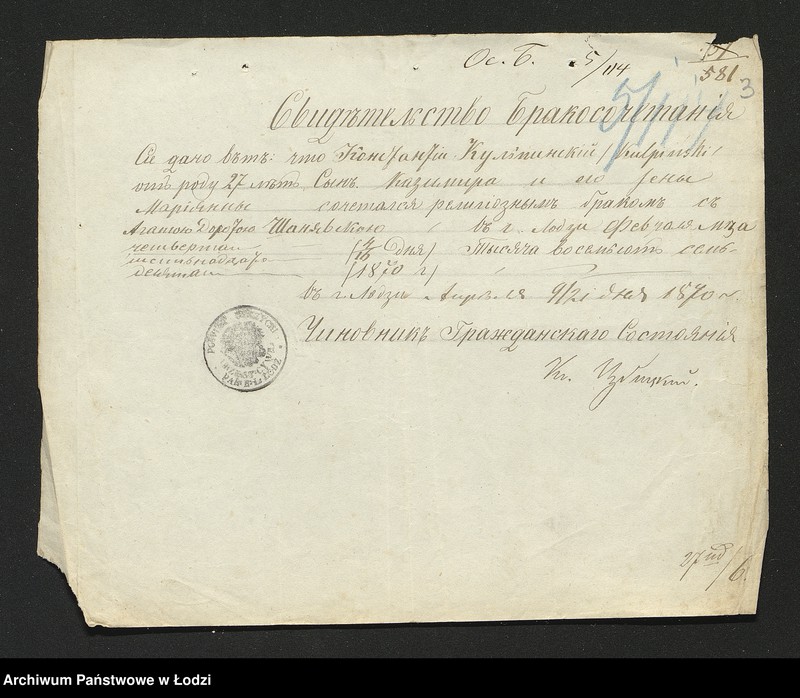 Ос. Б. 5/114
581
3
Свидѣтельство Бракосочетанія
Си дано вътъ: что Константій Кульпинскій / Kulpinski /
отъ роду 27 лѣтъ, Сынъ Казимира и его жены
Маріанны сочетался религіознымъ бракомъ съ
Агатою Доротою Шанявскою въ г. Лодзи Февраля мца
четвертаго (4/16 дня) Тысяча восемьсотъ семь-
(1870 г)
въ г. Лодзи Апрѣля 9/21 дня 1870 г.
Чиновникъ Гражданскаго Состоянія
Кс.
POWIAT ŁĘCZYCKI
27
6
Archiwum Państwowe w Łodzi